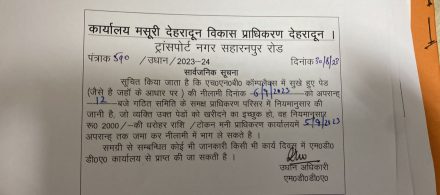 कार्यालय मसूरी देहरादून विकास प्राधिकरण देहरादून ।
ट्रांसपोर्ट नगर सहारनपुर रोड
पत्रांक 590 /उधान/2023-24 दिनांक 30/8/23
सार्वजनिक सूचना
सूचित किया जाता है कि एच०एन०बी० कॉम्पलेक्स में सूखे हुए पेड़
(जैसे है जहाँ के आधार पर ) की नीलामी दिनांक 6/9/2023 को अपरान्ह
12 बजे गठित समिति के समक्ष प्राधिकरण परिसर में नियमानुसार की
जानी है, जो व्यक्ति उक्त पेडों को खरीदने का इच्छुक हो, वह नियमानुसार
रू0 2000/-की धरोहर राशि /टोकन मनी प्राधिकरण कार्यालयमें 5/9/2023
अपरान्ह तक जमा कर नीलामी में भाग ले सकते है ।
समग्री से सम्बन्धित कोई भी जानकारी किसी भी कार्य दिवस में एम०डी०
डी०ए० कार्यालय से प्राप्त की जा सकती है ।
उधान अधिकारी
एम०डी०डी०ए०